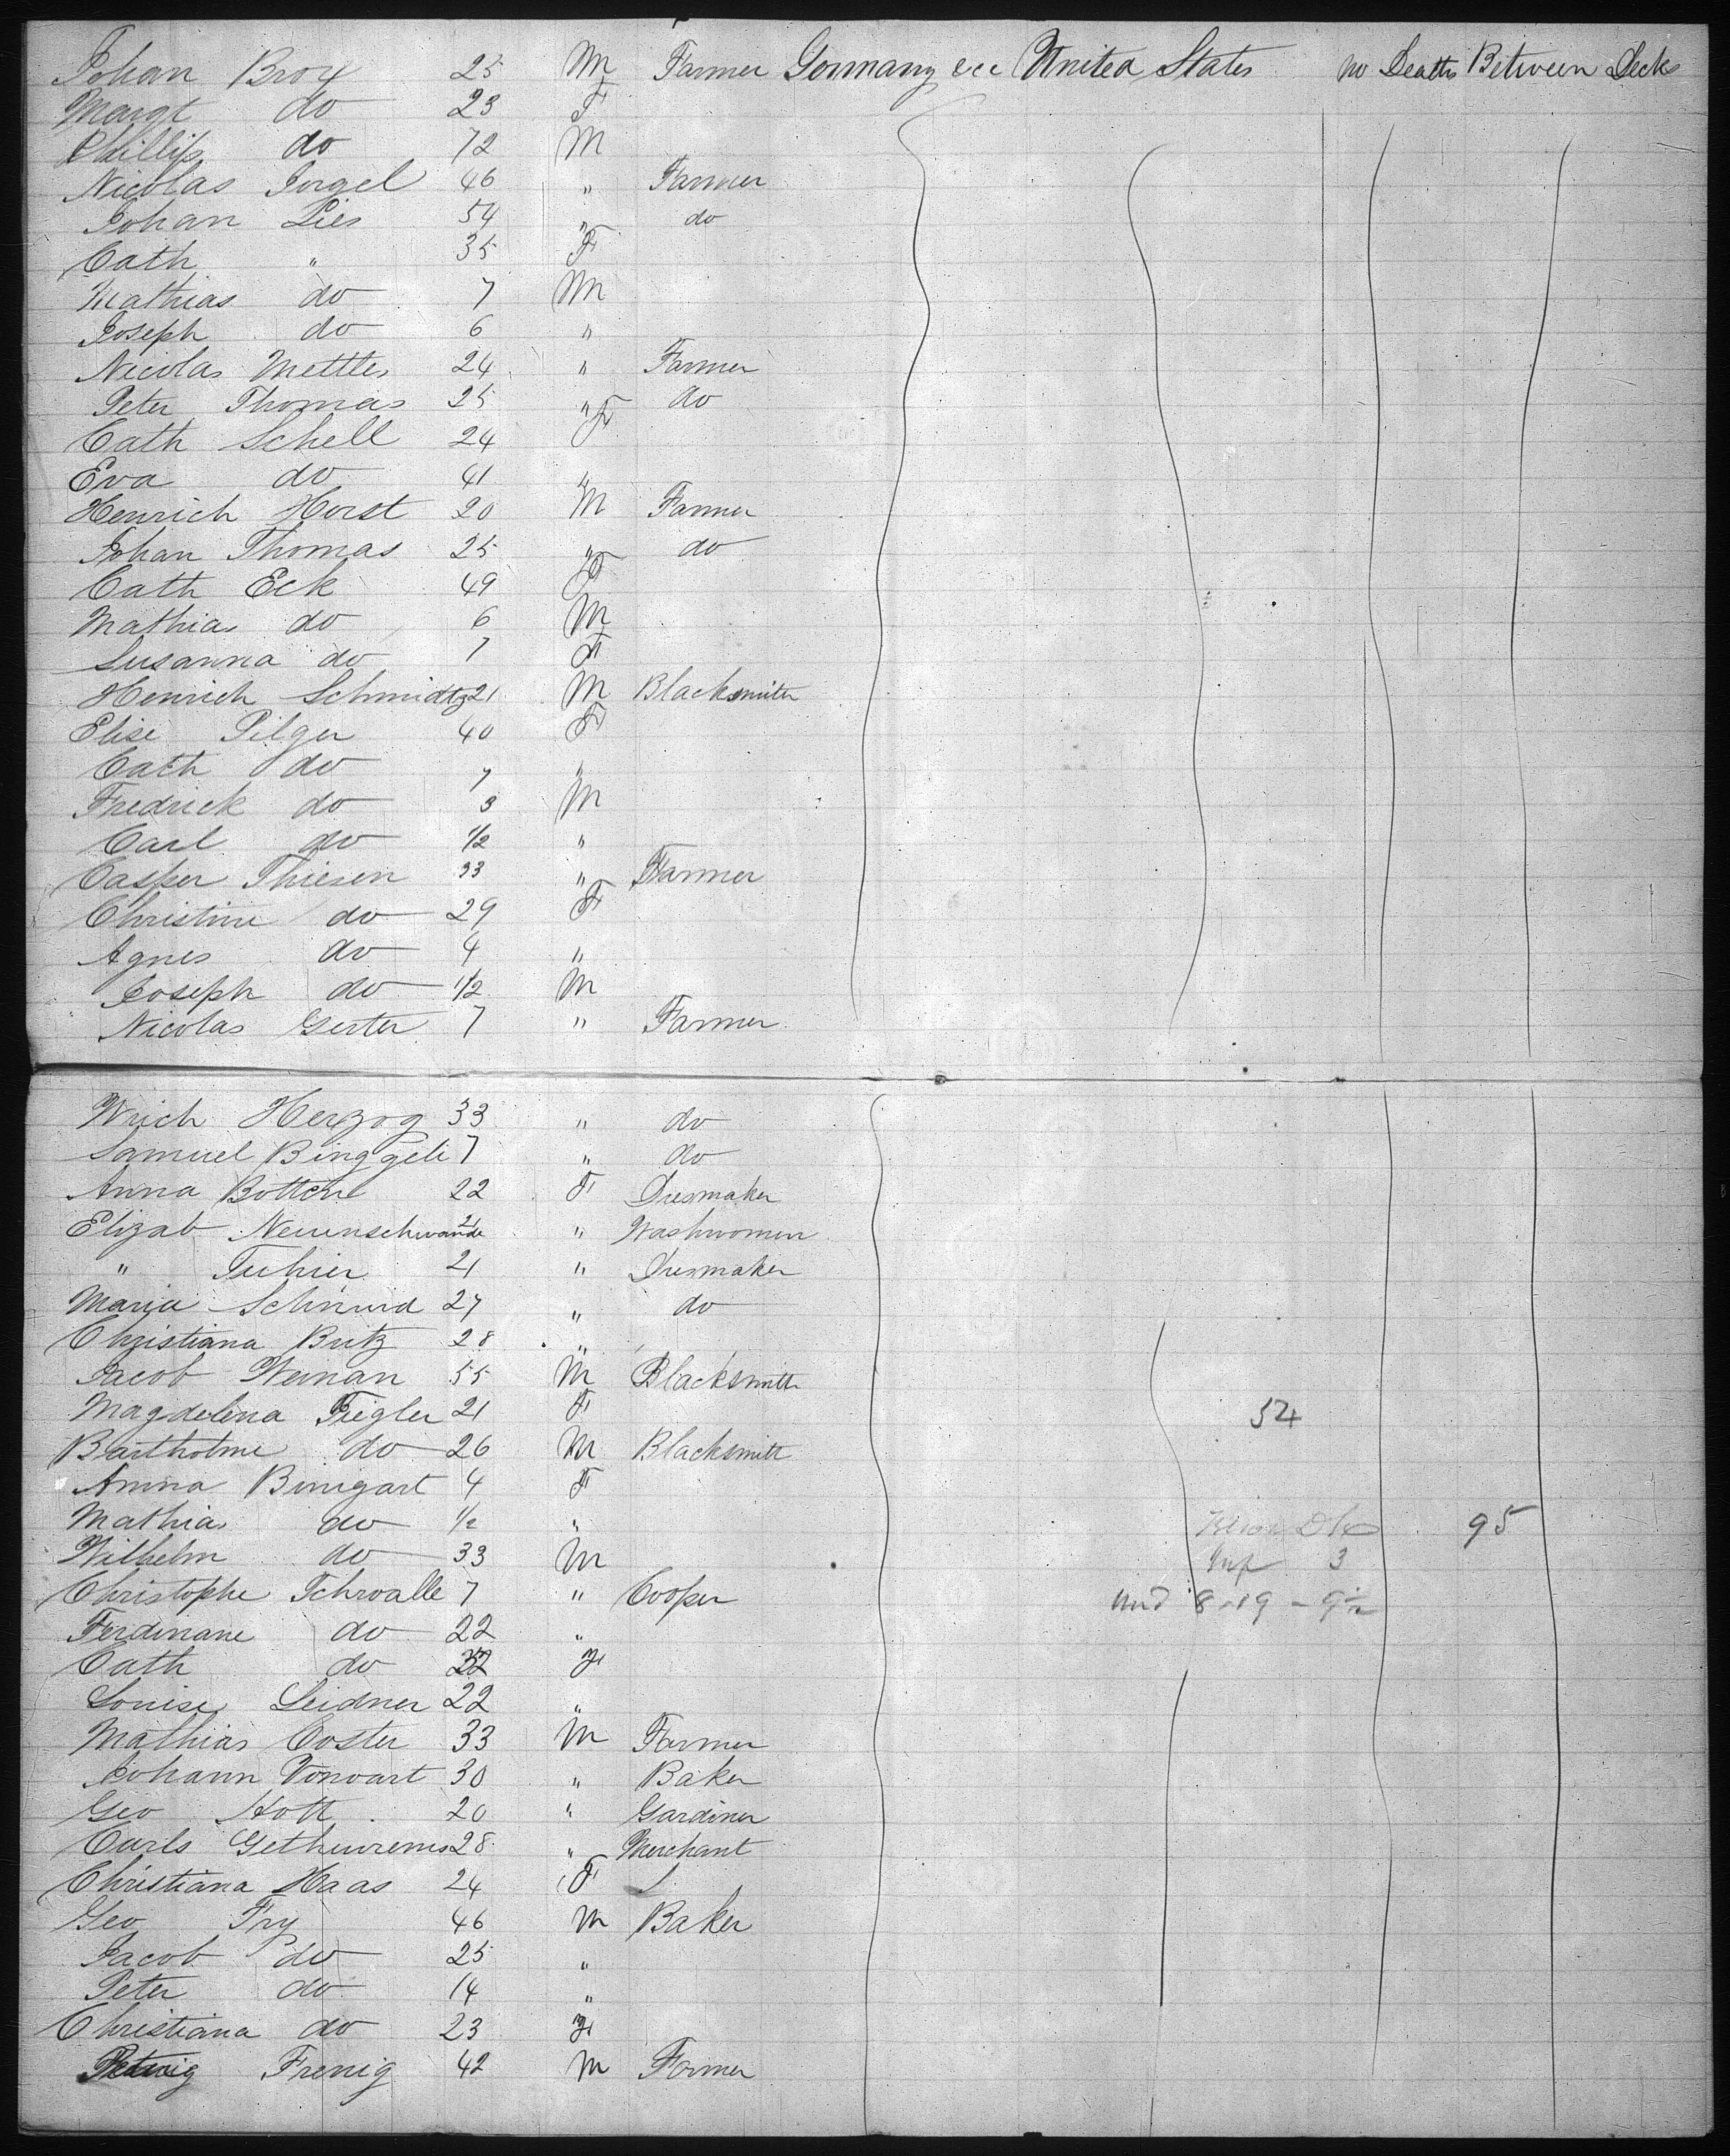 Johan Broy 25 M Farmer Germany &cc United States no Deaths Between Decks
Margt do 23 F
Phillip do 72 M
Nicolas Jorgel 46 " Farmer
Johan Lies 54 " do
Cath " 35 F
Mathias do 7 M
Joseph do 6 "
Nicolas Mettler 24 " Farmer
Peter Thomas 25 " do
Cath Schell 24 F
Eva do 41 "
Henrich Horst 20 M Farmer
Johan Thomas 25 " do
Cath Eck 49 F
Mathias do 6 M
Susanna do 7 F
Henrich Schmidtz 21 M Blacksmith
Elise Pilger 40 F
Cath do 7 "
Fredrick do 3 M
Carl do 1/2 "
Casper Thiesen 33 " Farmer
Christine do 29 F
Agnes do 4 "
Joseph do 1/2 M
Nicolas Gerter 7 " Farmer
Wrich Herzog 33 " do
Samuel Binggeli 7 " do
Anna Bottene 22 F Dresmaker
Elizab Neuenschwande 21 " Washwomen
" Tuhier 21 " Dresmaker
Maria Schnurd 27 " do
Christiana Britz 28 "
Jacob Weinan 55 M Blacksmith
Magdelena Fiegler 21 F
54
Bartholme do 26 M Blacksmith
Anna Binigart 4 F
Mathias do 1/2 "
95
Wilhelm do 33 M
Inf 3
Christophe Schwalle 7 " Cooper
und 8 - 19 - 9 1/2
Ferdinane do 22 "
Cath do 32 F
Louise Leidner 22 "
Mathias Coster 33 M Farmer
Johann Vonvart 30 " Baker
Geo Hott 20 " Gardiner
Carls Gethurems 28 " Merchant
Christiana Haas 24 F
Geo Fry 46 M Baker
Jacob do 25 "
Peter do 14 "
Christiana do 23 F
Frenig 42 M Farmer